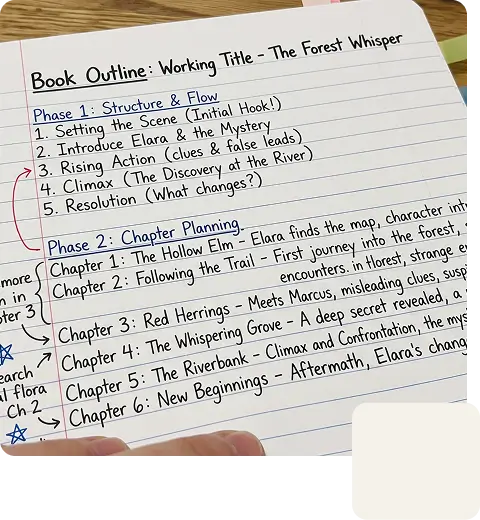 Book Outline: Working Title - The Forest Whisper
Phase 1: Structure & Flow
1. Setting the Scene (Initial Hook!)
2. Introduce Elara & the Mystery
3. Rising Action (clues & false leads)
4. Climax (The Discovery at the River)
5. Resolution (What changes?)
Phase 2: Chapter Planning.
Chapter 1: The Hollow Elm - Elara finds the map, character
Chapter 2: Following the Trail - First journey into the forest,
encounters. in florest, strange
Chapter 3: Red Herrings - Meets Marcus, misleading clues,
Chapter 4: The Whispering Grove - A deep secret revealed, a
Chapter 5: The Riverbank - Climax and Confrontation, the
Chapter 6: New Beginnings - Aftermath, Elara's
more
in
3
flora
Ch 2